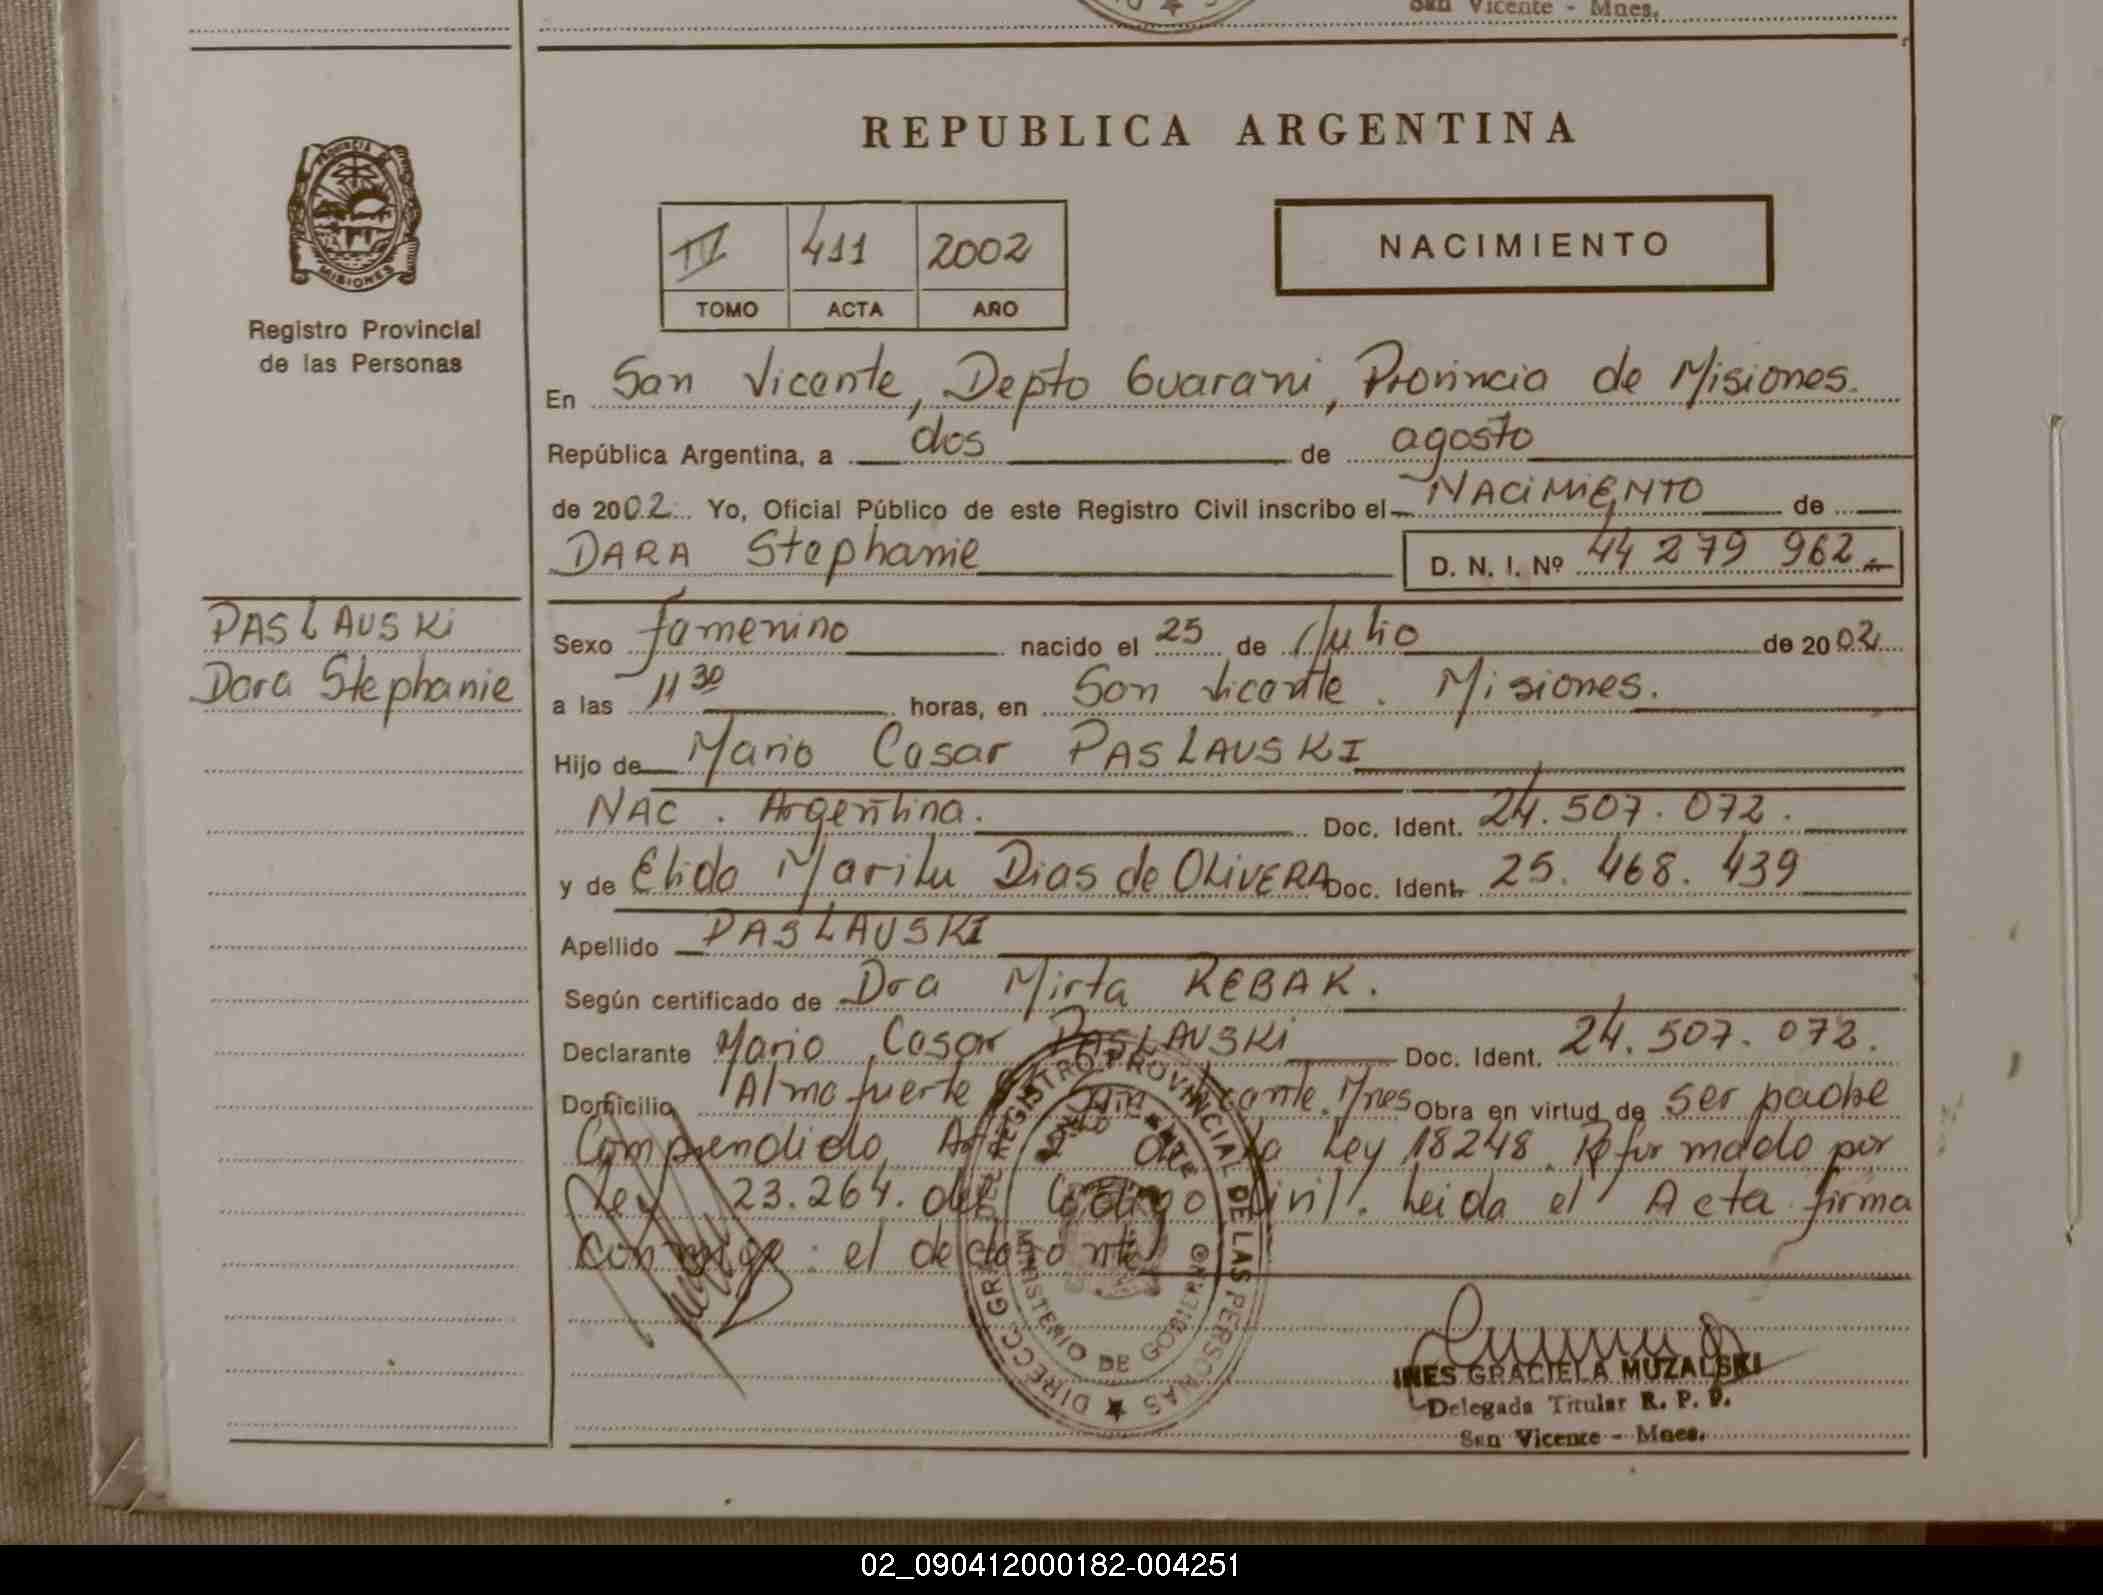 San Vicente - Mnes.
REPUBLICA ARGENTINA
PROVINCIA DE
MISIONES
Registro Provincial
de las Personas
IV 411 2002
TOMO ACTA AÑO
NACIMIENTO
En San Vicente, Depto Guarani, Provincia de Misiones.
República Argentina, a dos de agosto
de 2002. Yo, Oficial Público de este Registro Civil inscribo el NACIMIENTO de
DARA Stephanie D. N. I. Nº 44 279 962.
PASLAUSKi
Dara Stephanie
Sexo femenino nacido el 25 de Julio de 2002
a las 11 30 horas, en San Vicente. Misiones.
Hijo de Mario Cesar PASLAUSKI
NAC. Argentina. Doc. Ident. 24.507.072.
y de Elida Marilu Dias de OLIVERA Doc. Ident. 25.468.439
Apellido PASLAUSKI
Según certificado de Dra Mirta REBAK.
Declarante Mario Cesar PASLAUSKi Doc. Ident. 24.507.072.
Domicilio Almafuerte San Vicente. Mnes Obra en virtud de ser padre
Comprendido Art de la Ley 18248. Reformado por
Ley 23.264. del Codigo Civil. Leida el Acta firma
conmigo: el declarante
DIRECC. GRAL. DEL REGISTRO PROVINCIAL DE LAS PERSONAS
MINISTERIO DE GOBIERNO
INES GRACIELA MUZALSKI
Delegada Titular R. P. P.
San Vicente - Mnes.
02_090412000182-004251